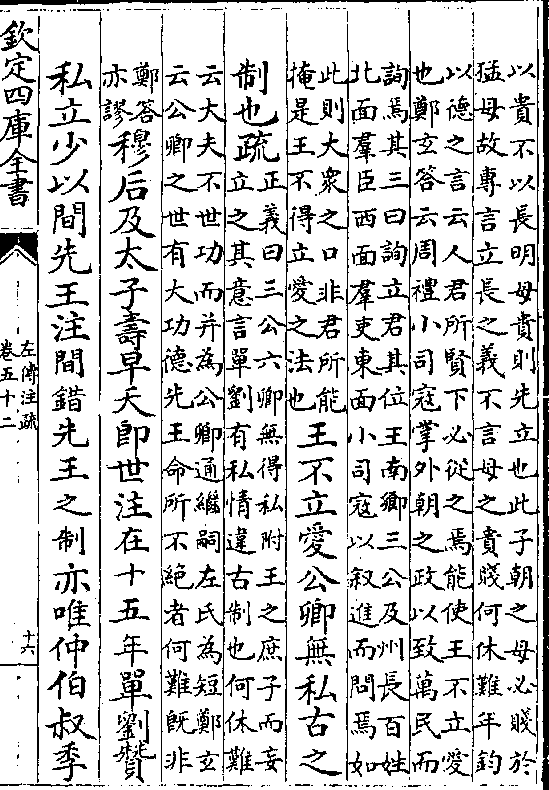 以貴不以長明母貴則先立也此子朝之母必賤於
猛母故專言立長之義不言母之貴賤何休難年鈞
以德之言云人君所賢下必從之焉能使王不立愛
也鄭玄答云周禮小司寇掌外朝之政以致萬民而
詢焉其三曰詢立君其位王南鄉三公及州長百姓
北面羣臣西面羣吏東面小司寇以叙進而問焉如
此則大衆之口非君所能
掩是王不得立愛之法也
王不立愛公卿無私古之
制也疏
正義曰三公六卿無得私附王之庶子而妄
立之其意言單劉有私情違古制也何休難
云大夫不世功而并為公卿通繼嗣左氏為短鄭玄
云公卿之世有大功德先王命所不絕者何難既非
鄭答
亦謬
穆后及太子壽早夭即世注在十五年單劉贊
私立少以間先王注間錯先王之制亦唯仲伯叔季
欽定四庫全書
左傳注疏
卷五十二
十六